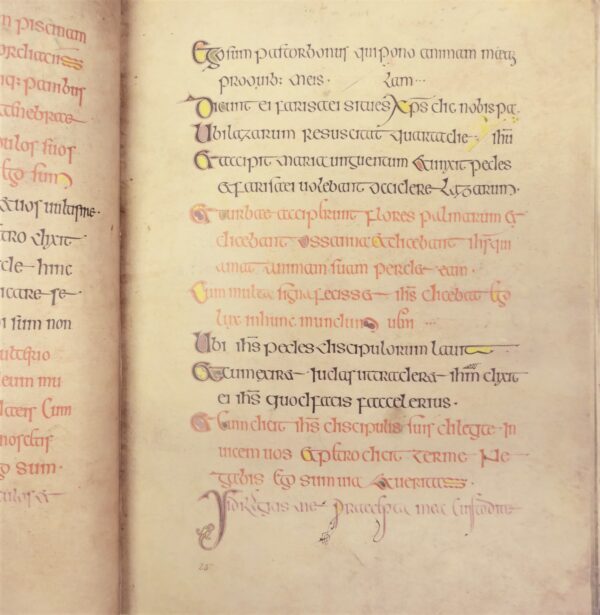 m piscinam
nq: panibus
tenebrae
pulos suos
Ego sum
&uos uultisme
tro dixit
hinc
icare se
i sum non
ulterio
mu
Cum
go sum
culos &
Ego sum pastorbonus qui pono animam meaz
proouib: meis · Lam ···
Dicunt ei farisaei situes xps dic nobis pa
Ubi lazarum resuscitat quartadie ihu
&accipit maria unguentum &unxit pedes
&farisaei uolebant occidere Lazarum·
&turbae acciperunt flores palmarum &
dicebant ossanna &dicebant ihs qui
amat animam suam perde eam·
Cum multa signa feciss& ihs dicebat Ego
lux inhunc mundum ···
Ubi ihs pedes discipulorum lauit
&cum iudas utrader& ihm dixit
ei ihs quodfacis faccelerius·
&cum dicit ihs discipulis suis dilegite in
uicem uos &p&ro dicit terme Ne
gabis Ego sum uia &ueritas
Sidiligitis me praecepta mea custodite
25